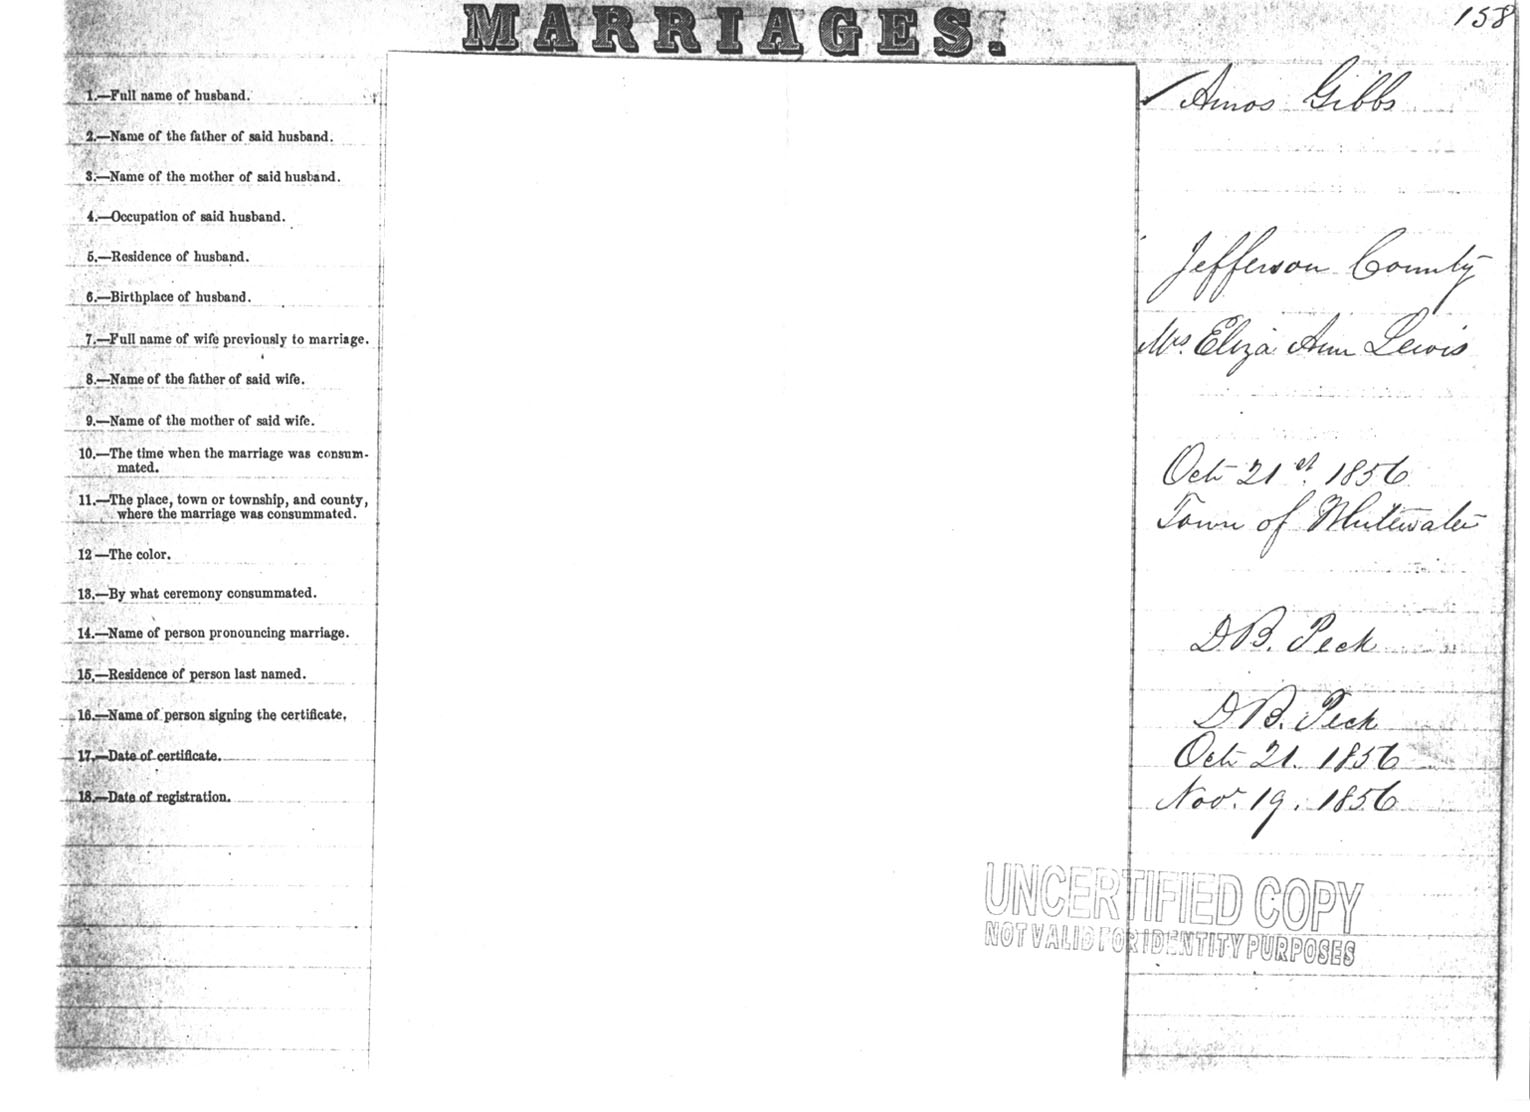 MARRIAGES.
158
1.—Full name of husband.
Amos Gibbs
2.—Name of the father of said husband.
3.—Name of the mother of said husband.
4.—Occupation of said husband.
5.—Residence of husband.
Jefferson County
6.—Birthplace of husband.
7.—Full name of wife previously to marriage.
Mrs. Eliza Ann Lewis
8.—Name of the father of said wife.
9.—Name of the mother of said wife.
10.—The time when the marriage was consum-
mated.
Oct 21st. 1856
11.—The place, town or township, and county,
where the marriage was consummated.
Town of Whitewater
12—The color.
13.—By what ceremony consummated.
14.—Name of person pronouncing marriage.
D B. Peck
15.—Residence of person last named.
16.—Name of person signing the certificate.
D B. Peck
17.—Date of certificate.
Oct 21. 1856
18.—Date of registration.
Novr. 19. 1856
UNCERTIFIED COPY
NOT VALID FOR IDENTITY PURPOSES